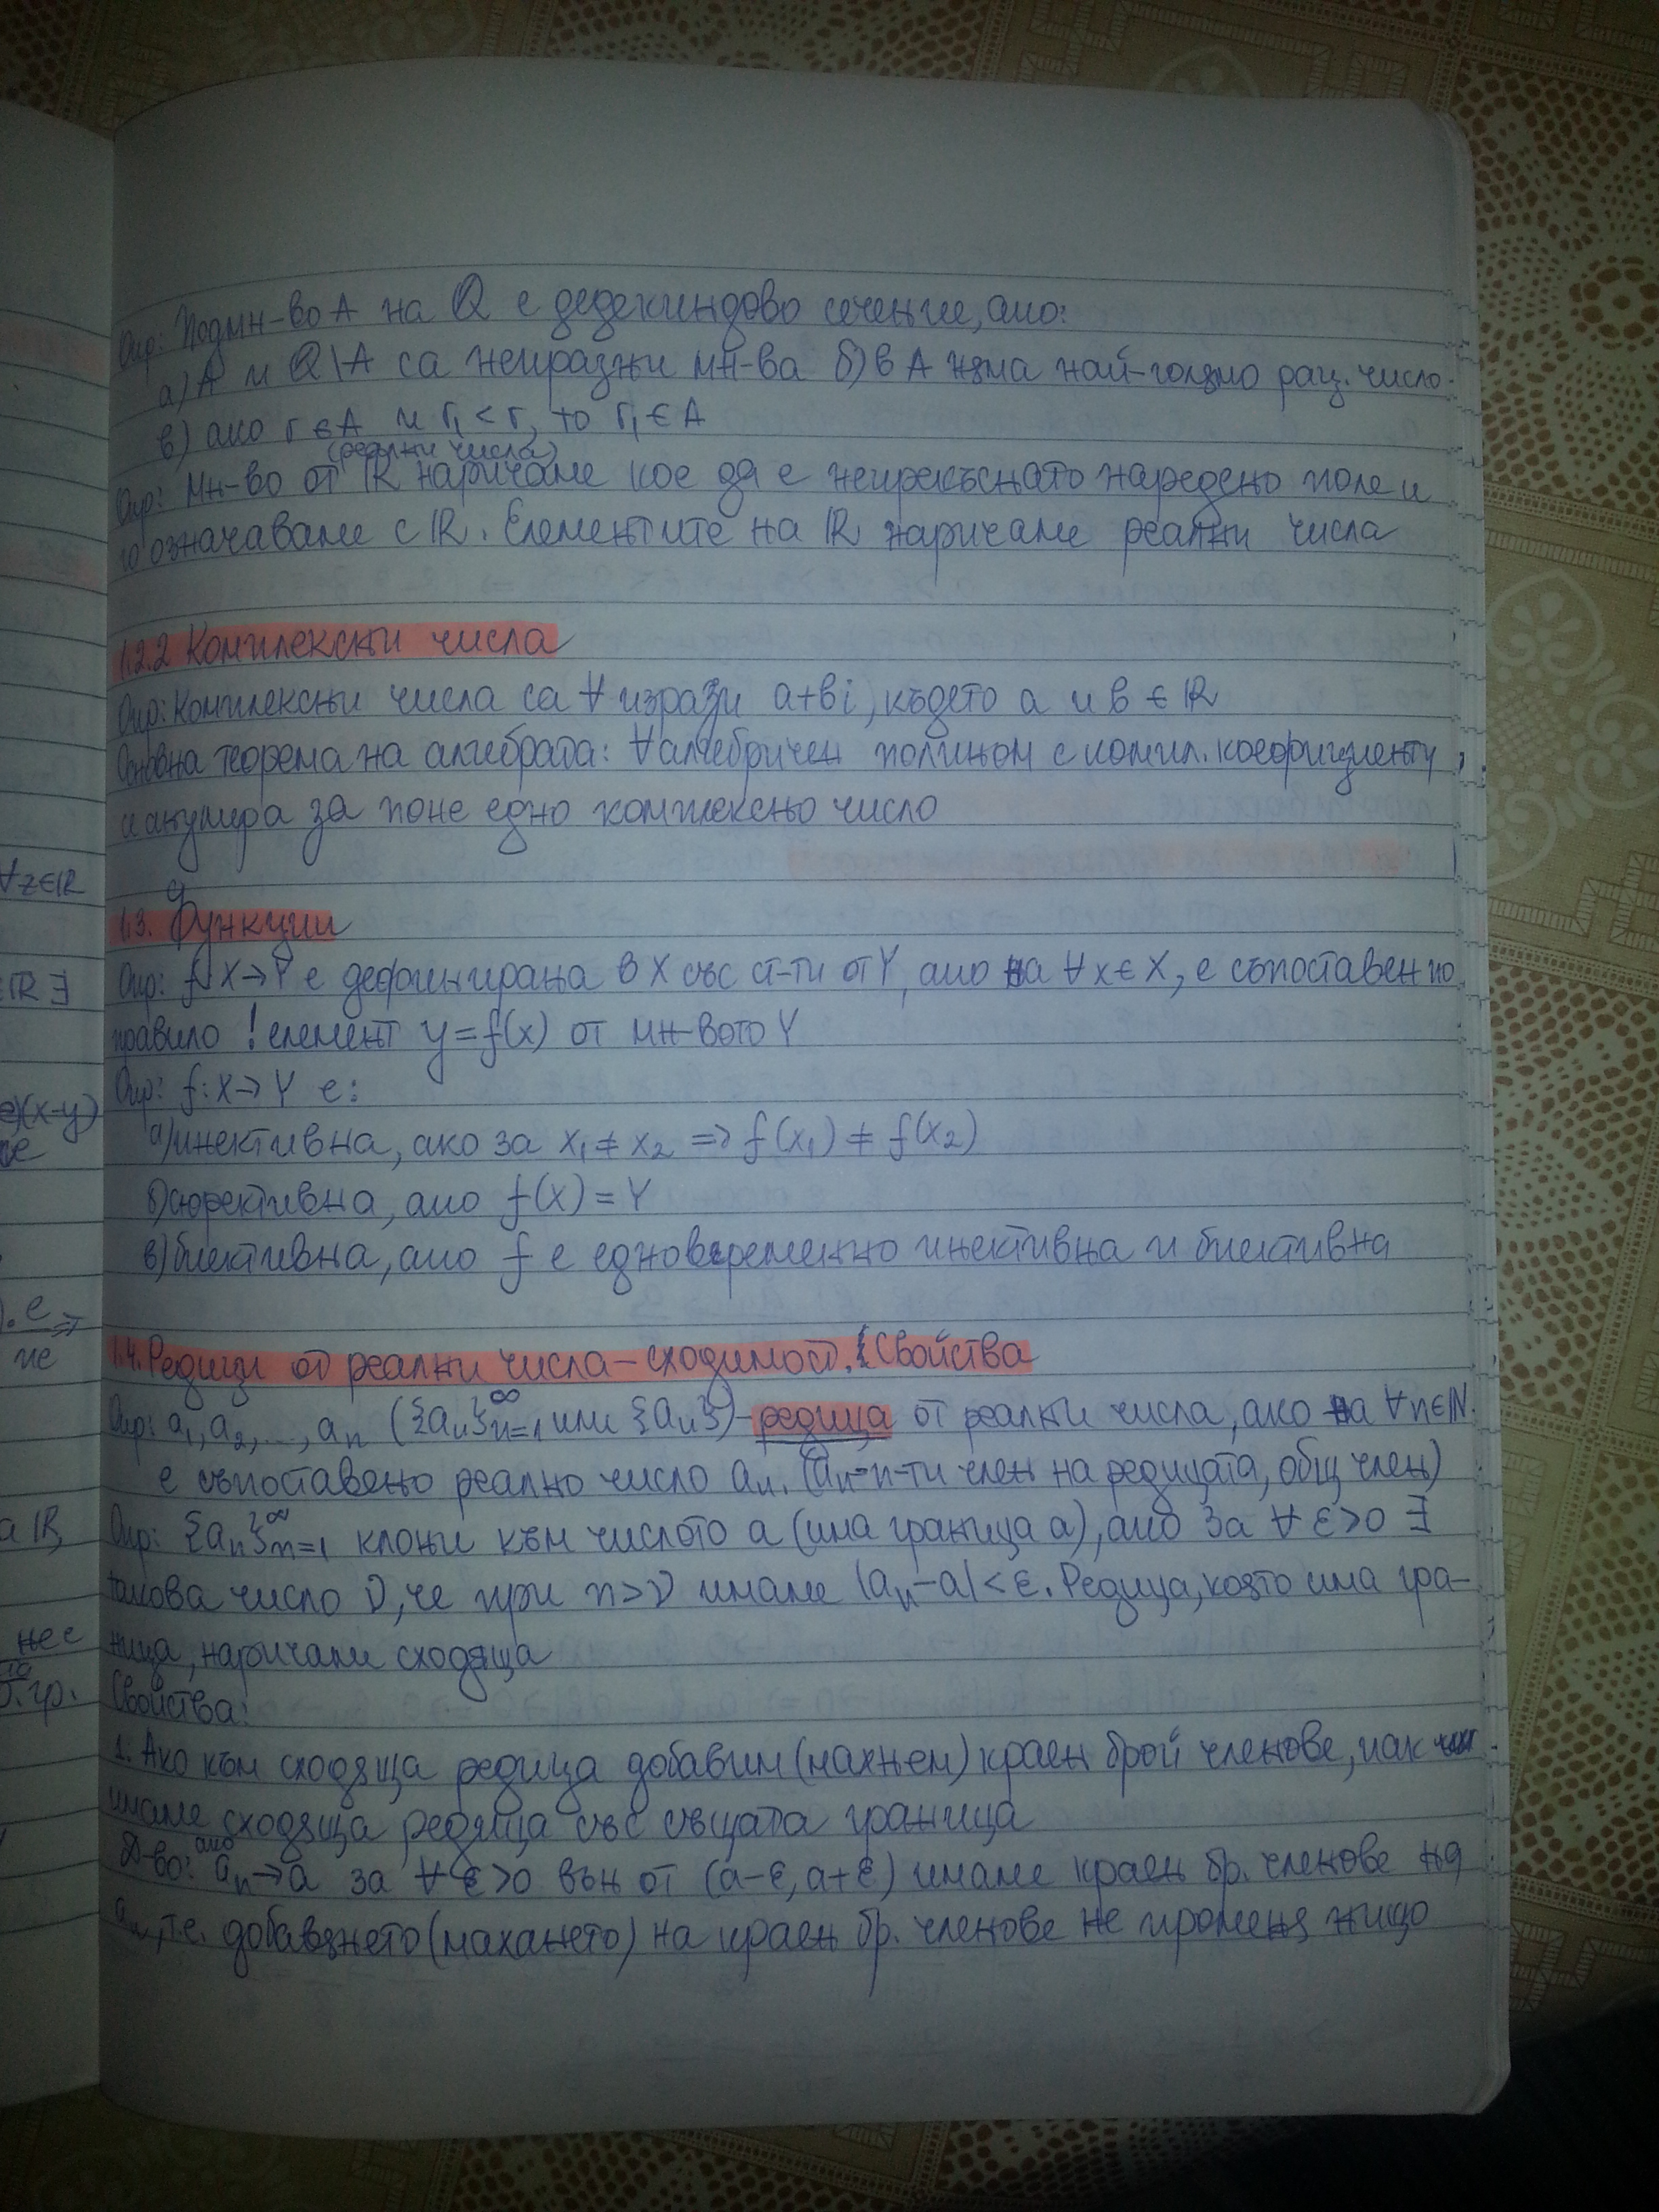 Опр: Подмн-во A на Q е дедекиндово сечение, ако:
а) A и Q\A са непразни мн-ва б) в A няма най-голямо рац. число
в) ако r ∈ A и r₁ < r, то r₁ ∈ A
(реални числа)
Опр: Мн-во от ℝ наричаме кое да е непрекъснато наредено поле и
го означаваме с ℝ. Елементите на ℝ наричаме реални числа
1.2.2 Комплексни числа
Опр: Комплексни числа са ∀ изрази a+bi, където a и b ∈ ℝ
Основна теорема на алгебрата: ∀ алгебричен полином с компл. коефициенти,
се анулира за поне едно комплексно число
1.3. Функции
Опр: f: X→Y е дефинирана в X със ст-ти от Y, ако на ∀ x∈X, е съпоставен по
правило ! елемент y=f(x) от мн-вото Y
Опр: f: X→Y е:
а) инективна, ако за x₁ ≠ x₂ => f(x₁) ≠ f(x₂)
б) сюрективна, ако f(x) = Y
в) биективна, ако f е едновременно инективна и биективна
1.4. Редици от реални числа – сходимост. Свойства
Опр: a₁, a₂, ..., aₙ ({aₙ}ₙ₌₁^∞ или {aₙ}) – редица от реални числа, ако на ∀ n∈N
е съпоставено реално число aₙ. (aₙ – n-ти член на редицата, общ член)
Опр: {aₙ}ₙ₌₁^∞ клони към числото a (има граница a), ако за ∀ ε>0 ∃
такова число ν, че при n>ν имаме |aₙ-a|<ε. Редица, която има гра-
ница, наричаме сходяща
Свойства:
1. Ако към сходяща редица добавим (махнем) краен брой членове, пак
имаме сходяща редица със същата граница
Д-во: ако aₙ→a за ∀ ε>0 вън от (a-ε, a+ε) имаме краен бр. членове на
aₙ, т.е. добавянето (махането) на краен бр. членове не променя нищо
∀z∈ℝ
ℝ ∃
(x-y)
е
не
ℝ,
не е
гр.